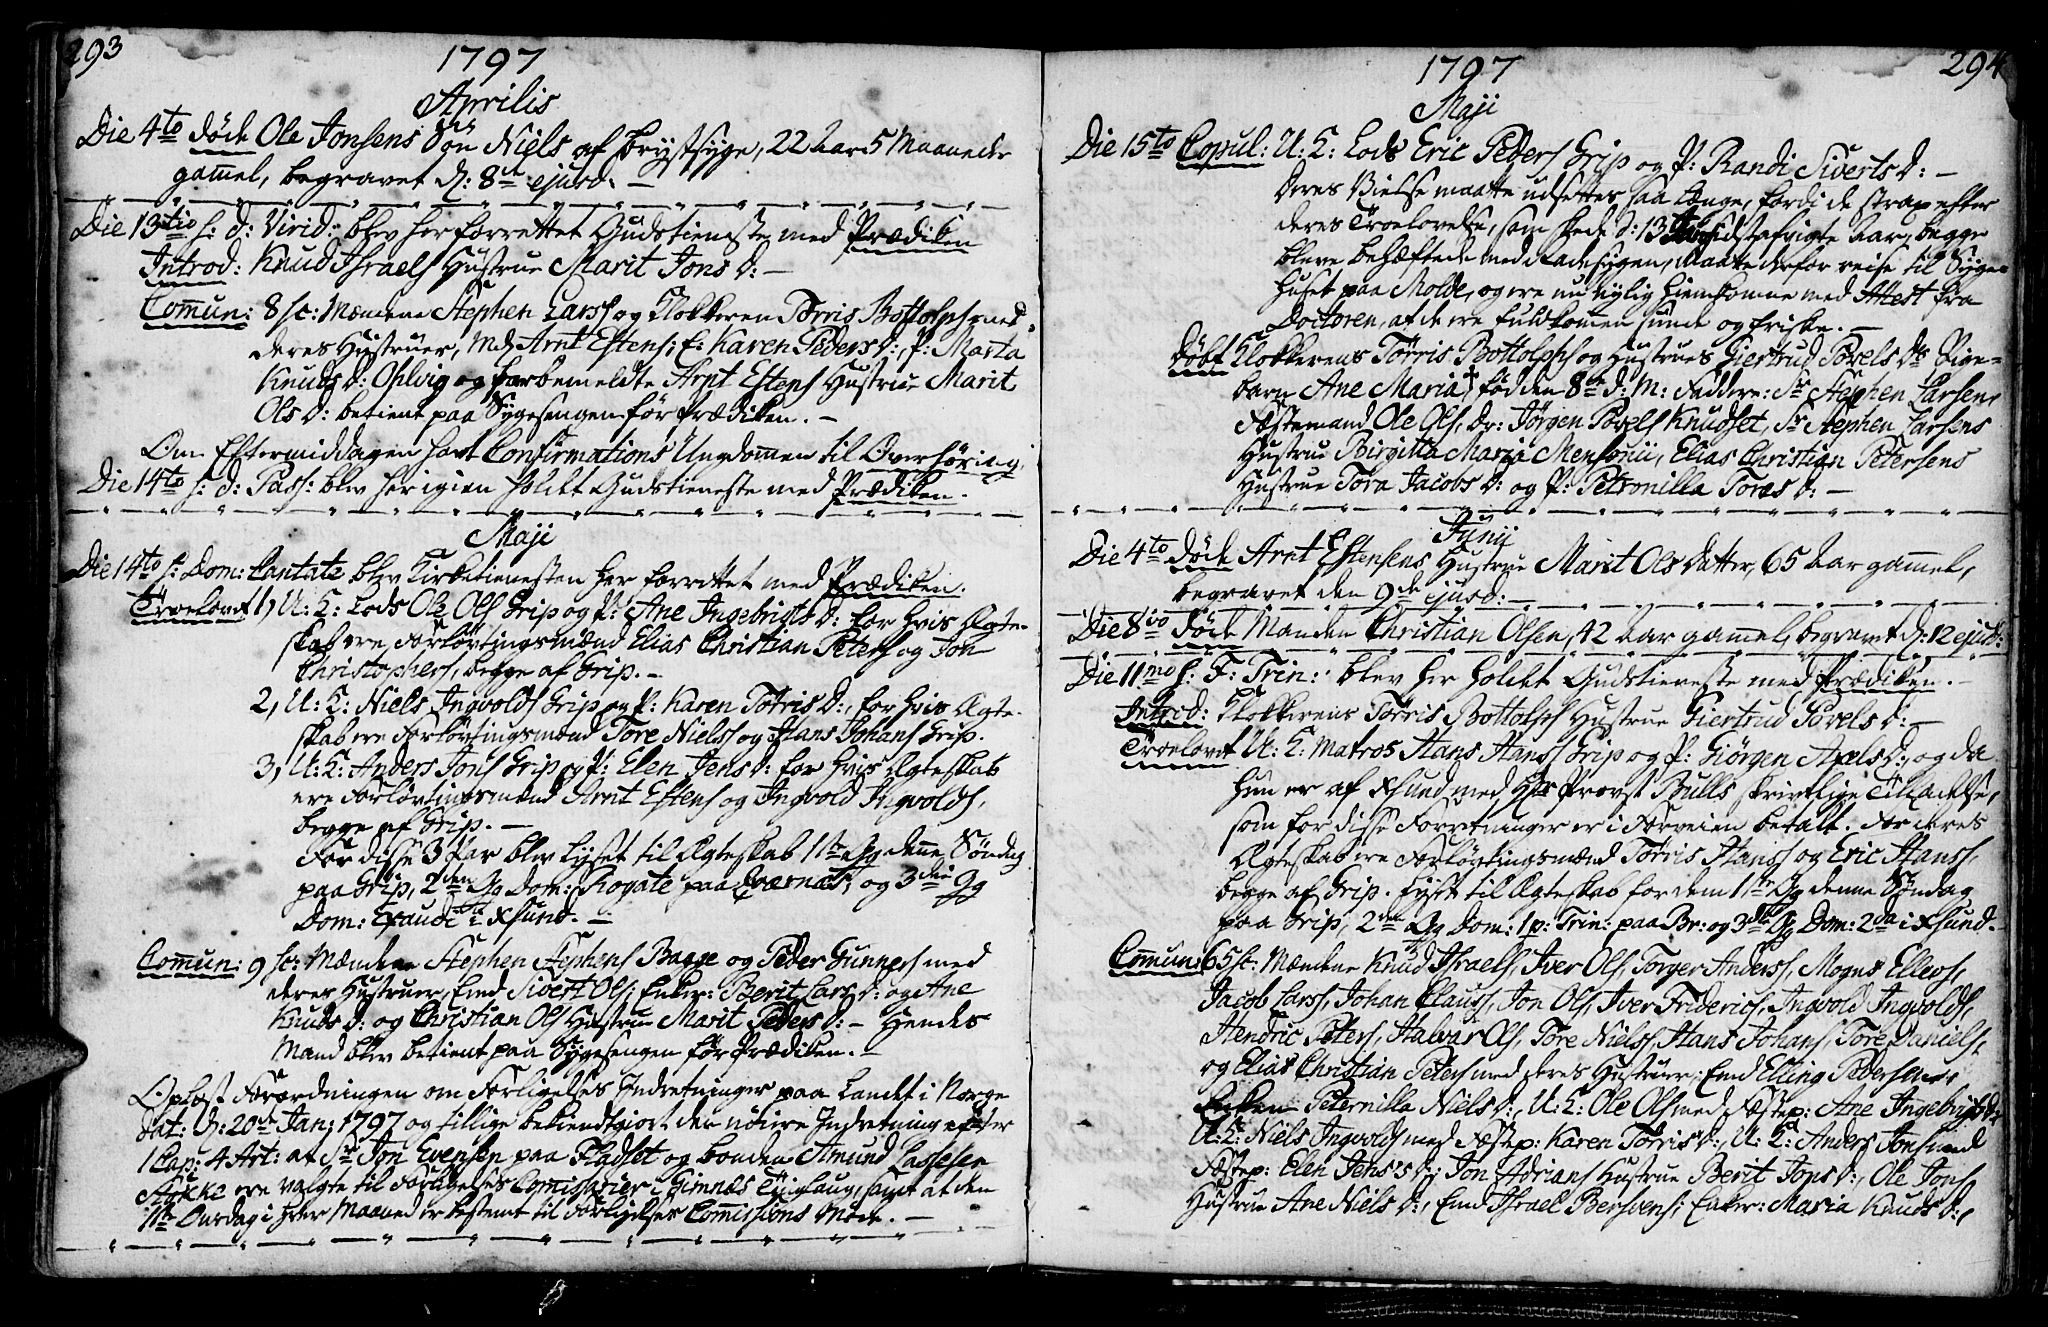 293
1797
Aprilis
Die 4to døde Ole Jonsens Søn Niels af brystsyge, 22 Aar 5 Maaneder
gamel, begravet d: 8de ejusd. —
Die 13tio h: d: Virid: blev her forrettet Gudstieneste med Prædiken
Introd: Knud Israels Hustrue Marit Jons D: —
Comun: 8 sc: Mændene Stephen Larss og Klokkeren Tørris Bottolphs med
deres Hustruer, Md Arnt Estens; E: Karen Peders D:, P: Marta
Knuds D: Ohlvig og forbemeldte Arnt Estens Hustrue Marit
Ols D: betient paa Sygesengen før Prædiken. —
Om Eftermiddagen havt Confirmations Ungdommen til Overhøring.
Die 14to h: d: Pass: blev her igien holdet Gudstieneste med Prædiken.
Maji
Die 14to h: Dom: Cantate blev Kirketienesten her forrettet med Prædiken.
Troelovet 1, U: K: Lods Ole Ols Grip og P: Ane Ingebrigts D: for hvis Ægte-
skab ere Forløvtingsmænd Elias Christian Peters og Jon
Christophers, begge af Grip. —
2, U: K: Niels Ingvolds Grip og P: Karen Tørris D:, for hvis Ægte-
skab ere Forløvtingsmænd Tore Nielss og Hans Johans Grip.
3, U: K: Anders Jons Grip og P: Elen Jens D: for hvis Ægteskab
ere Forløvtingsmænd Arnt Estens og Ingvold Ingvolds,
begge af Grip. —
For disse 3 Par blev lyset til Ægteskab 1ste Gg denne Søndag
paa Grip, 2den Gg Dom: Rogate paa Qværnæs, og 3die Gg
Dom: Exaudi i Xsund. —
Comun: 9 sc: Mændene Stephen Stephens Bagge og Peder Gunners med
deres Hustruer, Emd Sivert Ols; Enker: Berit Lars D: og Ane
Knuds D: og Christian Ols Hustrue Marit Peders D: — Hendes
Mand blev betient paa Sygesengen før Prædiken. —
Oplæst Forordningen om Forligelses Indretninger paa Landet i Norge
dat: d: 20de Jan: 1797 og tillige bekiendtgiort den nøiere Indretning efter
1 Cap: 4 Art: at Sr Jon Evensen paa Fladset og bonden Amund Lassesen
Stokke ere valgte til Forligelses Comissarier i Gimnæs Tinglaug, samt at den
1ste Onsdag i hver Maaned er bestemt til Forligelses Comissions Møde. —
294
1797
Maji
Die 15to Copul: U: K: Lods Eric Peders Grip og P: Randi Siverts D: —
deres Vielse maatte udsettes saa længe, fordi de strax efter
deres Troelovelse, som skede d: 13 sidstafvigte Aar, begge
bleve behæftede med Radesygen, Maatte derfor reise til Syge-
huset paa Molde, og ere nu nylig hiemkomne med Attest fra
Doctoren, at de ere fuldkommen sunde og friske. —
Døbt Klokkerens Tørris Bottolphs og Hustrues Giertrud Povels Drs Pige-
barn Ane Maria, fød den 8de d: M: Faddere: Sr Stephen Larsen,
Fæstemand Ole Ols, Dr: Jørgen Povels Knudset, Sr Stephen Larsens
Hustrue Birgitta Maria Mensonii, Elias Christian Petersens
Hustrue Tora Jacobs D: og P: Petronilla Tores D: —
Junii
Die 4to døde Arnt Estensens Hustrue Marit Ols Datter, 65 Aar gamel,
begravet den 9de ejusd: —
Die 8vo døde Manden Christian Olsen, 42 Aar gamel, begravet d: 12 ejusd:
Die 11mo h: F: Trin: blev her holdet Gudstieneste med Prædiken. —
Introd: Klokkerens Tørris Bottolphs Hustrue Giertrud Povels D: —
Troelovet U: K: Matros Hans Hanss Grip og P: Giørgen Axels D:, og da
hun er af Xsund med Hr Provst Bulls skrivtlige Tilladelse,
som for disse Forretninger er i Forveien betalt. For deres
Ægteskab ere Forløvtingsmænd Tørris Hanss og Eric Hanss,
begge af Grip. Lyst til Ægteskab for dem 1ste Gg denne Søndag
paa Grip, 2den Gg Dom: 1 p: Trin: paa Br: og 3die Gg Dom: 2da i Xsund. —
Comun: 65 sc: Mændene Knud Israels, Iver Ols, Torger Anderss, Mogns Ellevs,
Jacob Larss, Johan Clauss, Jon Ols, Iver Friderics, Ingvold Ingvolds,
Hendric Peters, Halvar Ols, Tore Nielss, Hans Johans, Tore Daniels,
og Elias Christian Peters med deres Hustruer; Emd Elling Pedersen,
Enken Peternilla Niels D:, U: K: Ole Ols med Fæstep: Ane Ingebrigts D:
U: K: Niels Ingvolds med Fæstep: Karen Tørris D:, U: K: Anders Jons med
Fæstep: Elen Jens's D:; Jon Adrians Hustrue Berit Jons D:, Ole Jons
Hustrue Ane Niels D:, Emd Israel Bersvens; Enker: Maria Knuds D:,